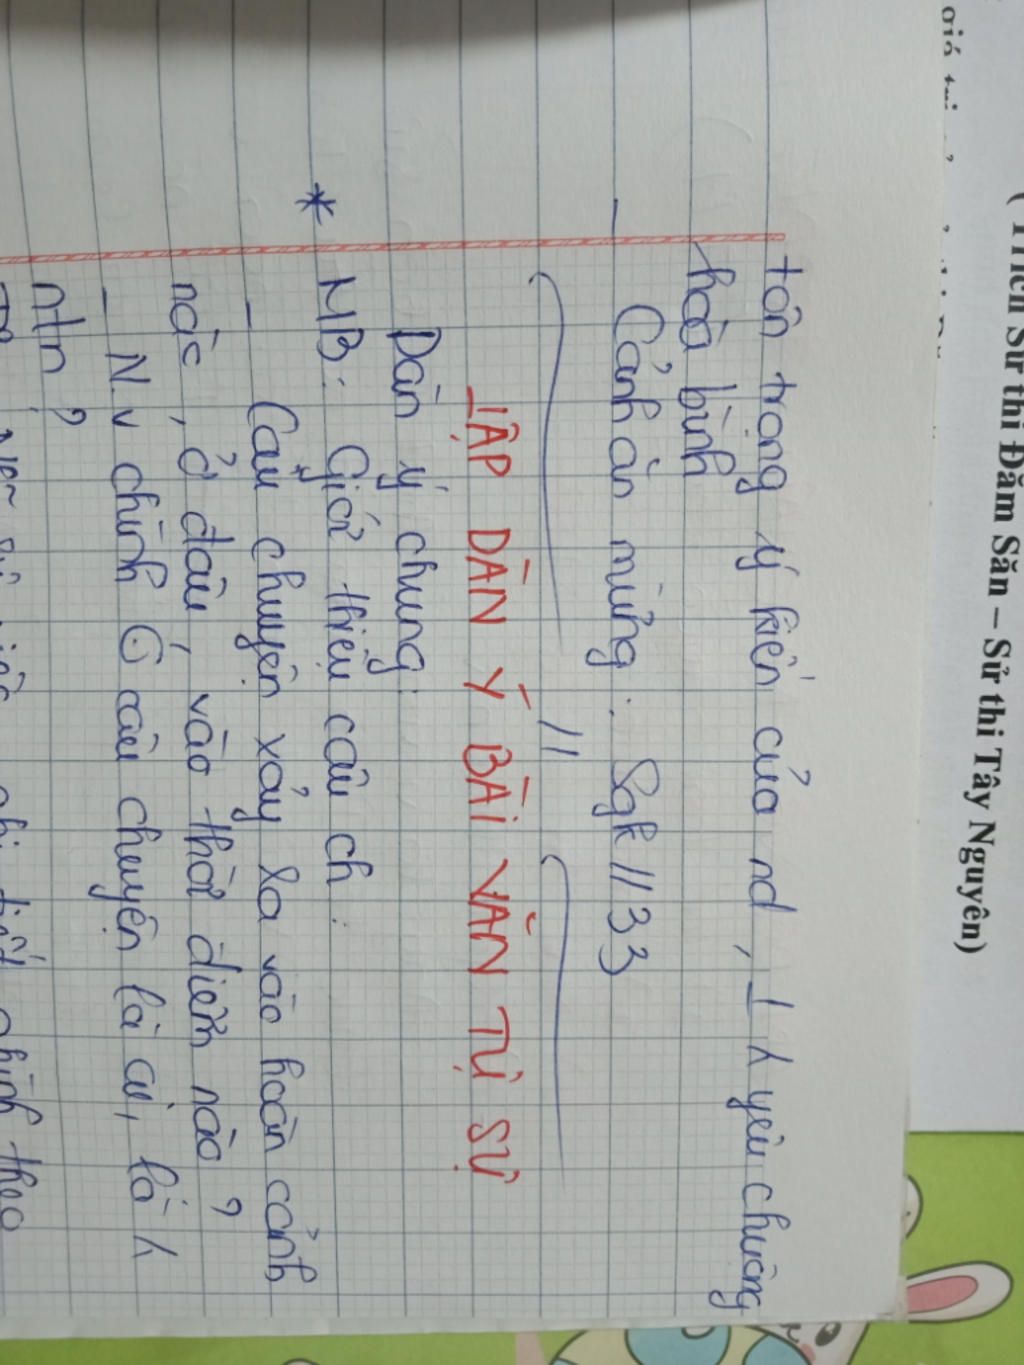 ( Trích Sử thi Đăm Săn – Sử thi Tây Nguyên)
tôn trọng ý kiến của nd, 1 λ yêu chuộng
hoà bình
- Cảnh ăn mừng: Sgk // 33
//
LẬP DÀN Ý BÀI VĂN TỰ SỰ
Dàn ý chung:
* MB: Giới thiệu câu ch:
- Câu chuyện xảy ra vào hoàn cảnh
nào, ở đâu, vào thời điểm nào?
- N.v chính ⊙ câu chuyện là ai, là λ
ntn?
theo